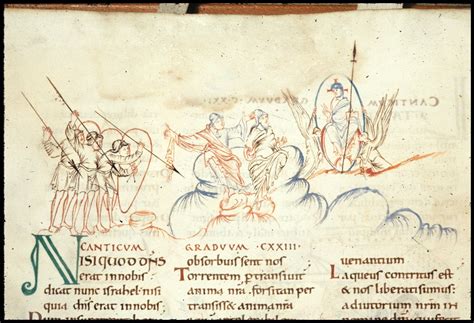 CANTICUM GRADUUM CXXIII
NISIQUODDNS
erat innobis
dicat nunc israhel nisi
quia dns erat innobis:
obsorbuissent nos
Torrentem ptransiuit
anima nra. forsitan per
transisset animanra
uenantium
Laqueus contritus est
& nos liberatisumus:
adiutorium nrm in